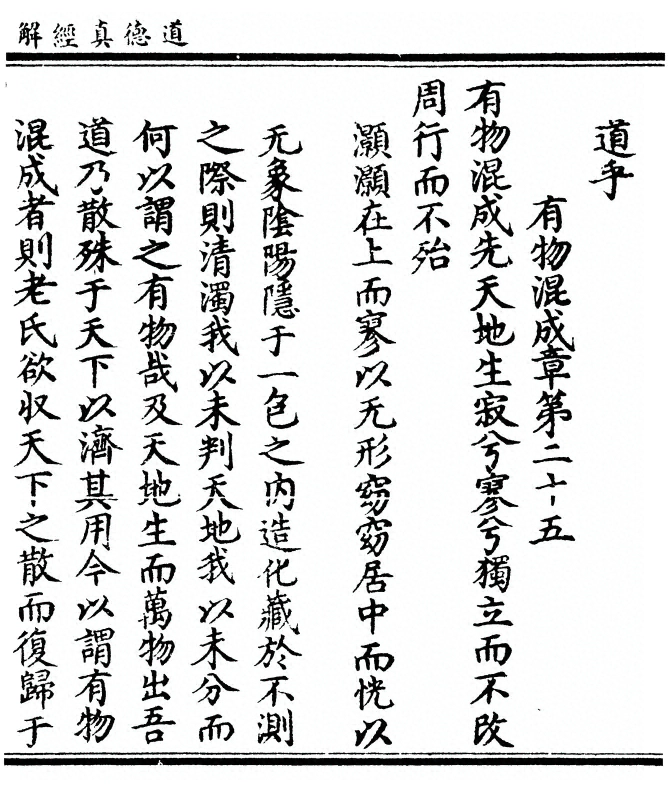 道德真經解
道乎
有物混成章第二十五
有物混成先天地生寂兮寥兮獨立而不改
周行而不殆
灝灝在上而寥以无形窈窈居中而恍以
无象陰陽隱于一包之內造化藏於不測
之際則清濁我以未判天地我以未分而
何以謂之有物哉及天地生而萬物出吾
道乃散殊于天下以濟其用今以謂有物
混成者則老氏欲収天下之散而復歸于